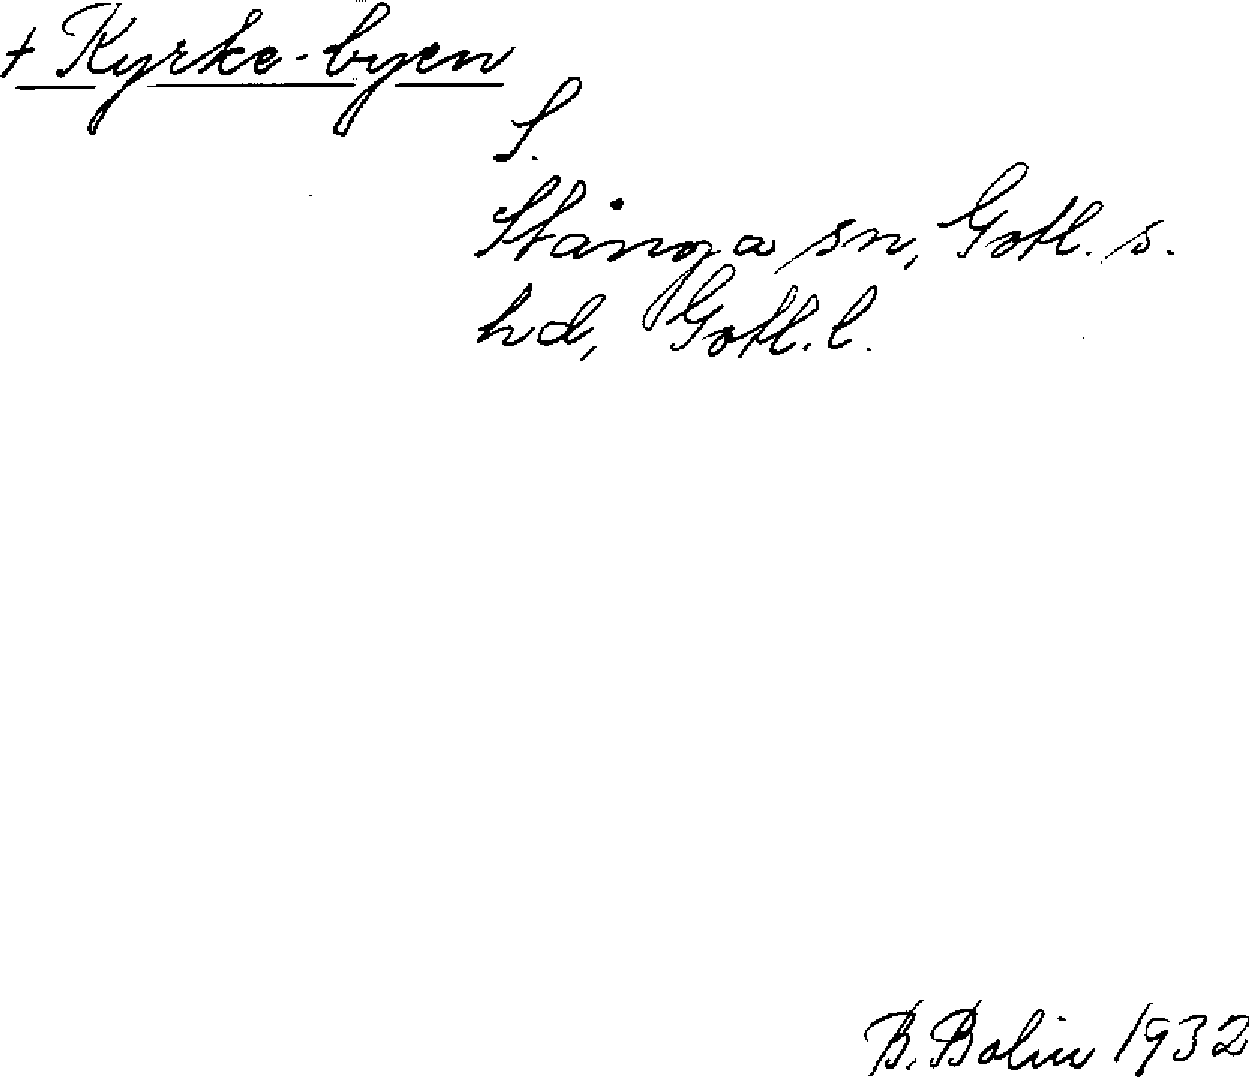 + Kyrke-byen
S.
Stånga sn, Gotl. s.
hd, Gotl. l.
B. Bolin 1932